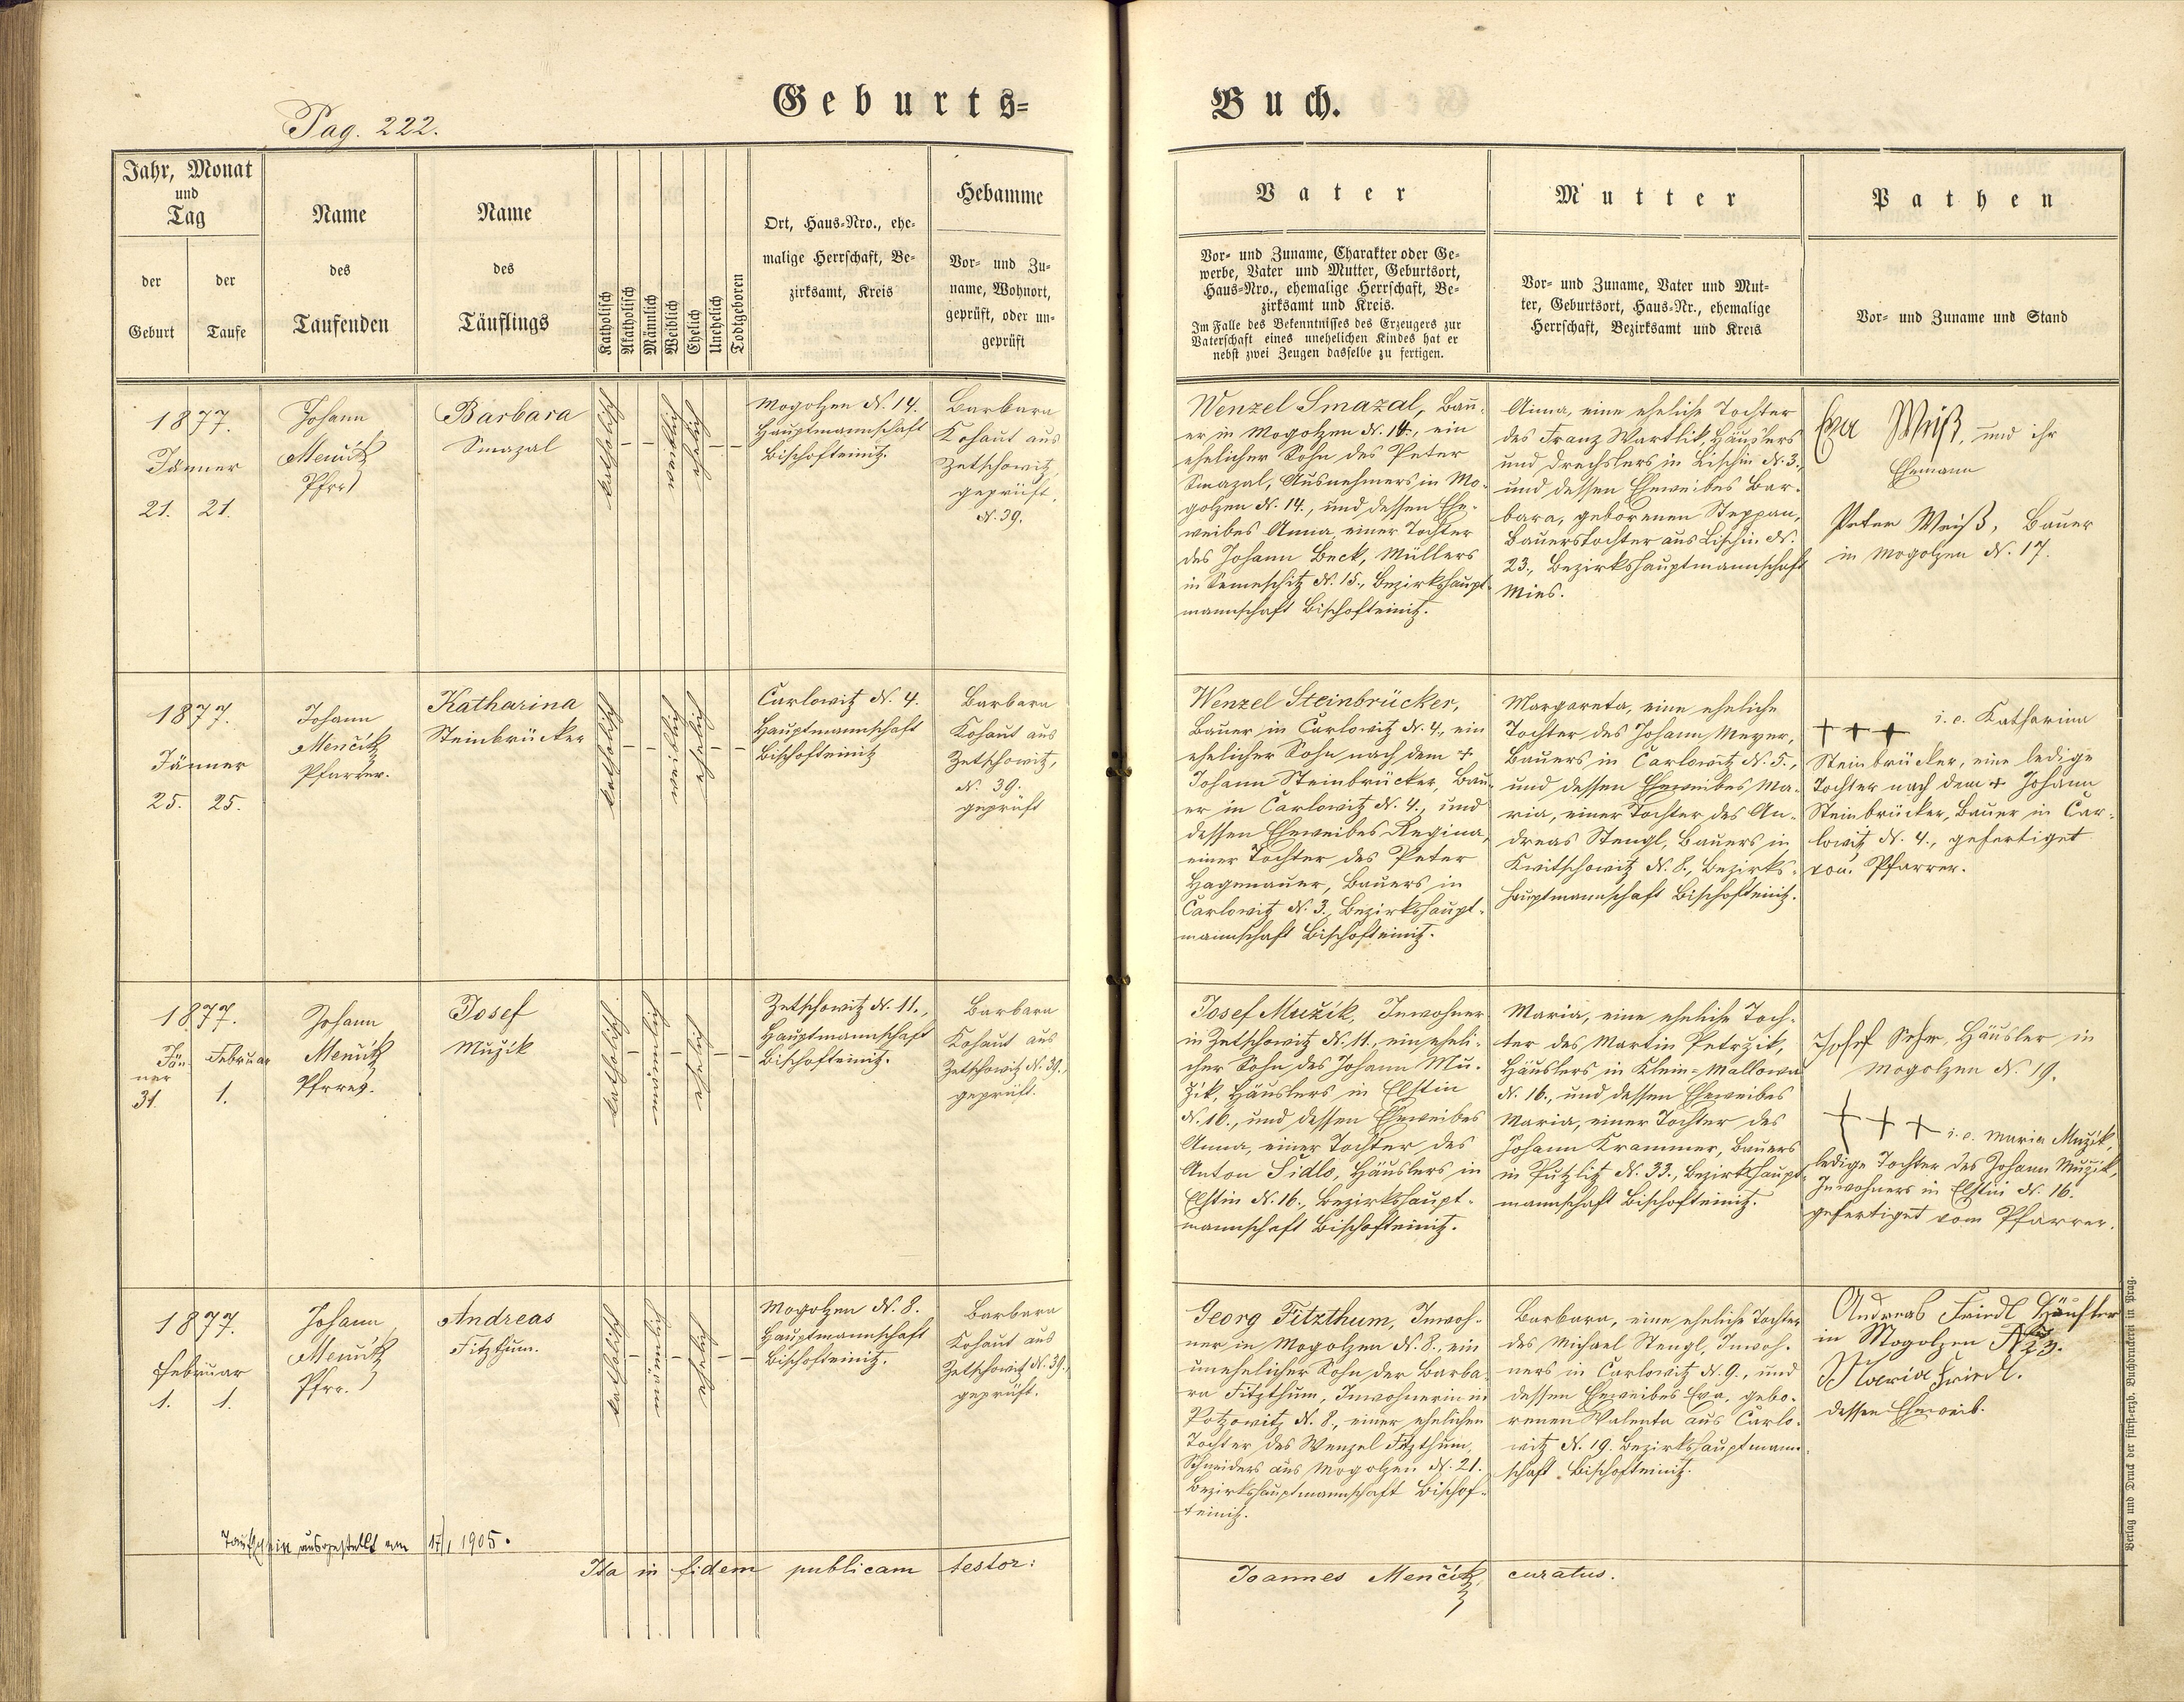 Pag. 222.
Geburts=
Buch.
Jahr, Monat
und
Tag
der
Geburt
der
Taufe
Name
des
Taufenden
Name
des
Täuflings
Katholisch
Akatholisch
Männlich
Weiblich
Ehelich
Unehelich
Todtgeboren
Ort, Haus=Nro., ehe=
malige Herrschaft, Be=
zirksamt, Kreis
Hebamme
Vor= und Zu=
name, Wohnort,
geprüft, oder un=
geprüft
Vater
Vor= und Zuname, Charakter oder Ge=
werbe, Vater und Mutter, Geburtsort,
Haus=Nro., ehemalige Herrschaft, Be=
zirksamt und Kreis.
Im Falle des Bekenntnisses des Erzeugers zur
Vaterschaft eines unehelichen Kindes hat er
nebst zwei Zeugen dasselbe zu fertigen.
Mutter
Vor= und Zuname, Vater und Mut=
ter, Geburtsort, Haus=Nr., ehemalige
Herrschaft, Bezirksamt und Kreis
Pathen
Vor= und Zuname und Stand
1877.
Jänner
21. 21.
Johann
Menčik
Pfrr.
Barbara
Smazal
katholisch
–
–
weiblich
ehelich
–
–
Mogolzen N. 14.
Hauptmannschaft
Bischofteinitz.
Barbara
Kohaut aus
Zetschowitz,
geprüft.
N. 39.
Wenzel Smazal, Bau=
er in Mogolzen N. 14., ein
ehelicher Sohn des Peter
Smazal, Ausnehmers in Mo=
golzen N. 14., und dessen Ehe=
weibes Anna, einer Tochter
des Johann Beck, Müllers
in Semeschitz N. 15., Bezirkshaupt=
mannschaft Bischofteinitz.
Anna, eine eheliche Tochter
des Franz Wartlik, Häuslers
und Drechslers in Lischin N. 3.,
und dessen Eheweibes Bar=
bara, geborenen Steppan,
Bauerstochter aus Lischin N.
23., Bezirkshauptmannschaft
Mies.
Eva Weiß, und ihr
Ehemann
Peter Weiß, Bauer
in Mogolzen N. 17.
1877.
Jänner
25. 25.
Johann
Menčik
Pfarrer.
Katharina
Steinbrücker
katholisch
–
–
weiblich
ehelich
–
–
Carlowitz N. 4.
Hauptmannschaft
Bischofteinitz
Barbara
Kohaut aus
Zetschowitz,
N. 39.
geprüft
Wenzel Steinbrücker,
Bauer in Carlowitz N. 4., ein
ehelicher Sohn nach dem +
Johann Steinbrücker, Bau=
er in Carlowitz N. 4., und
dessen Eheweibes Regina,
einer Tochter des Peter
Hagenauer, Bauers in
Carlowitz N. 3., Bezirkshaupt=
mannschaft Bischofteinitz.
Margareta, eine eheliche
Tochter des Johann Meyer,
Bauers in Carlowitz N. 5.,
und dessen Eheweibes Ma=
ria, einer Tochter des An=
dreas Stengl, Bauers in
Kwitschowitz N. 8., Bezirks=
hauptmannschaft Bischofteinitz.
+ + + i. e. Katharina
Steinbrücker, eine ledige
Tochter nach dem + Johann
Steinbrücker, Bauer in Car=
lowitz N. 4., gefertiget
vom Pfarrer.
1877.
Jän= Februar
ner
31. 1.
Johann
Menčik
Pfrrer.
Josef
Mužik
katholisch
–
männlich
–
ehelich
–
–
Zetschowitz N. 11.,
Hauptmannschaft
Bischofteinitz.
Barbara
Kohaut aus
Zetschowitz N. 39.,
geprüft.
Josef Mužik, Inwohner
in Zetschowitz N. 11., ein eheli=
cher Sohn des Johann Mu=
žik, Häuslers in Elstin
N. 16., und dessen Eheweibes
Anna, einer Tochter des
Anton Sidlo, Häuslers in
Elstin N. 16., Bezirkshaupt=
mannschaft Bischofteinitz.
Maria, eine eheliche Toch=
ter des Martin Petržik,
Häuslers in Klein=Mallowa
N. 16., und dessen Eheweibes
Maria, einer Tochter des
Johann Krammer, Bauers
in Putzlitz N. 33., Bezirkshaupt=
mannschaft Bischofteinitz.
Josef Häusler in
Mogolzen N. 19.
+ + + i. e. Maria Mužik,
ledige Tochter des Johann Mužik,
Inwohners in Elstin N. 16.
gefertiget vom Pfarrer.
1877.
Februar
1. 1.
Johann
Menčik
Pfrr.
Andreas
Fitzthum.
katholisch
–
männlich
–
ehelich
–
–
Mogolzen N. 8.
Hauptmannschaft
Bischofteinitz.
Barbara
Kohaut aus
Zetschowitz N. 39.,
geprüft.
Georg Fitzthum, Inwoh=
ner in Mogolzen N. 8., ein
unehelicher Sohn der Barba=
ra Fitzthum, Inwohnerin in
Potzowitz N. 8., einer ehelichen
Tochter des Wenzel Fitzthum,
Schneiders aus Mogolzen N. 21.
Bezirkshauptmannschaft Bischof=
teinitz.
Barbara, eine eheliche Tochter
des Michael Stengl, Inwoh=
ners in Carlowitz N. 9., und
dessen Eheweibes Eva, gebo=
renen Walenta aus Carlo=
witz N. 19. Bezirkshauptmann=
schaft Bischofteinitz.
Andreas Friedl Häusler
in Mogolzen N 23.
Maria Friedl.
dessen Eheweib.
Taufschein ausgestellt am 17/1 1905.
Ita in fidem publicam testor:
Joannes Menčik, curatus.
Verlag und Druck der fürst=erzb. Buchdruckerei in Prag.